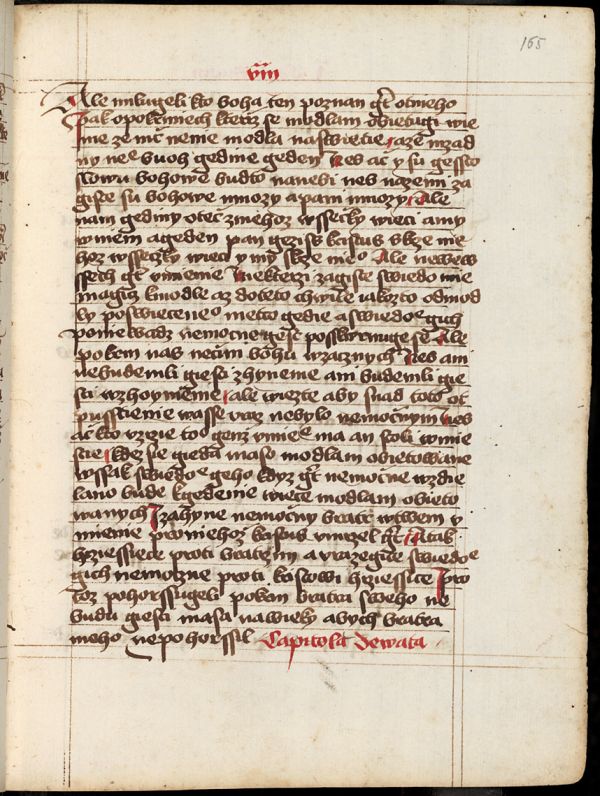 165
viii
Ale milugeli kto boha ten poznan gt ot nieho
Pak o pokrmiech kterz se modlam obietugi wie
me ze nic nenie modla na swietie a ze nizad
ny nenie buoh gedine geden Neb ac y su gessto
slowu bohowe budto na nebi neb na zemi za
giste su bohowe mnozy a pani mnozy Ale
nam gediny otec z niehoz wssecky wieci a my
w niem a geden pan gezis kristus skrze nie
hoz wsseczky wieci y my skrze nieho Ale ne we w
ssech gt umienie Niekterzi zagiste swiedomie
magic k modle az do teto chwile iakozto od mod
ly poswieceneho nietco gedie a swiedomie gich
poniewadz nemocne gest possskwrnuge se Ale
pokrm nas necini bohu wzacznych Neb ani
nebudemli giesti zhyneme ani budemli gie
sti wzhoynieme ale wizte aby snad toto ot
pusstienie wasse uraz nebylo nemocnym Neb
ac kto uzrie toho genz umienie ma an stoli w mie
stie kdez sie gieda maso modlam obietowane
wssak swiedomie geho kdyz gt nemocne wzdie
lano bude k gedenie wiece modlam obieto
wanych I zahyne nemocny bratr w twem u
mienie pro niehoz kristus umrzel gt A tak
hrziessiece proti bratrzim a urazegice swiedomie
gich nemocne proti kristowi hrziessite Pro
toz pohorssugeli pokrm bratra meho ne
budu giesti masa na wieky abych bratra
meho nepohorssil Capitola dewata